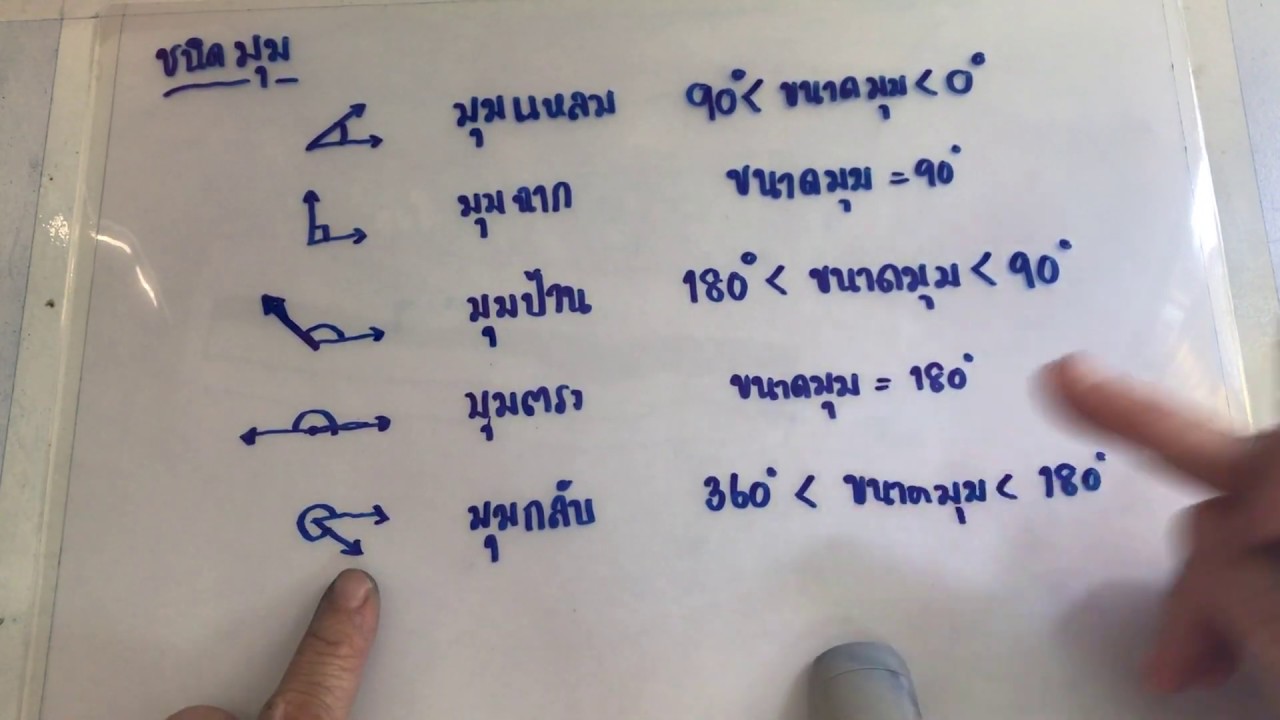 ชนิดมุม
มุมแหลม 90° < ขนาดมุม < 0°
มุมฉาก ขนาดมุม = 90°
มุมป้าน 180° < ขนาดมุม < 90°
มุมตรง ขนาดมุม = 180°
มุมกลับ 360° < ขนาดมุม < 180°